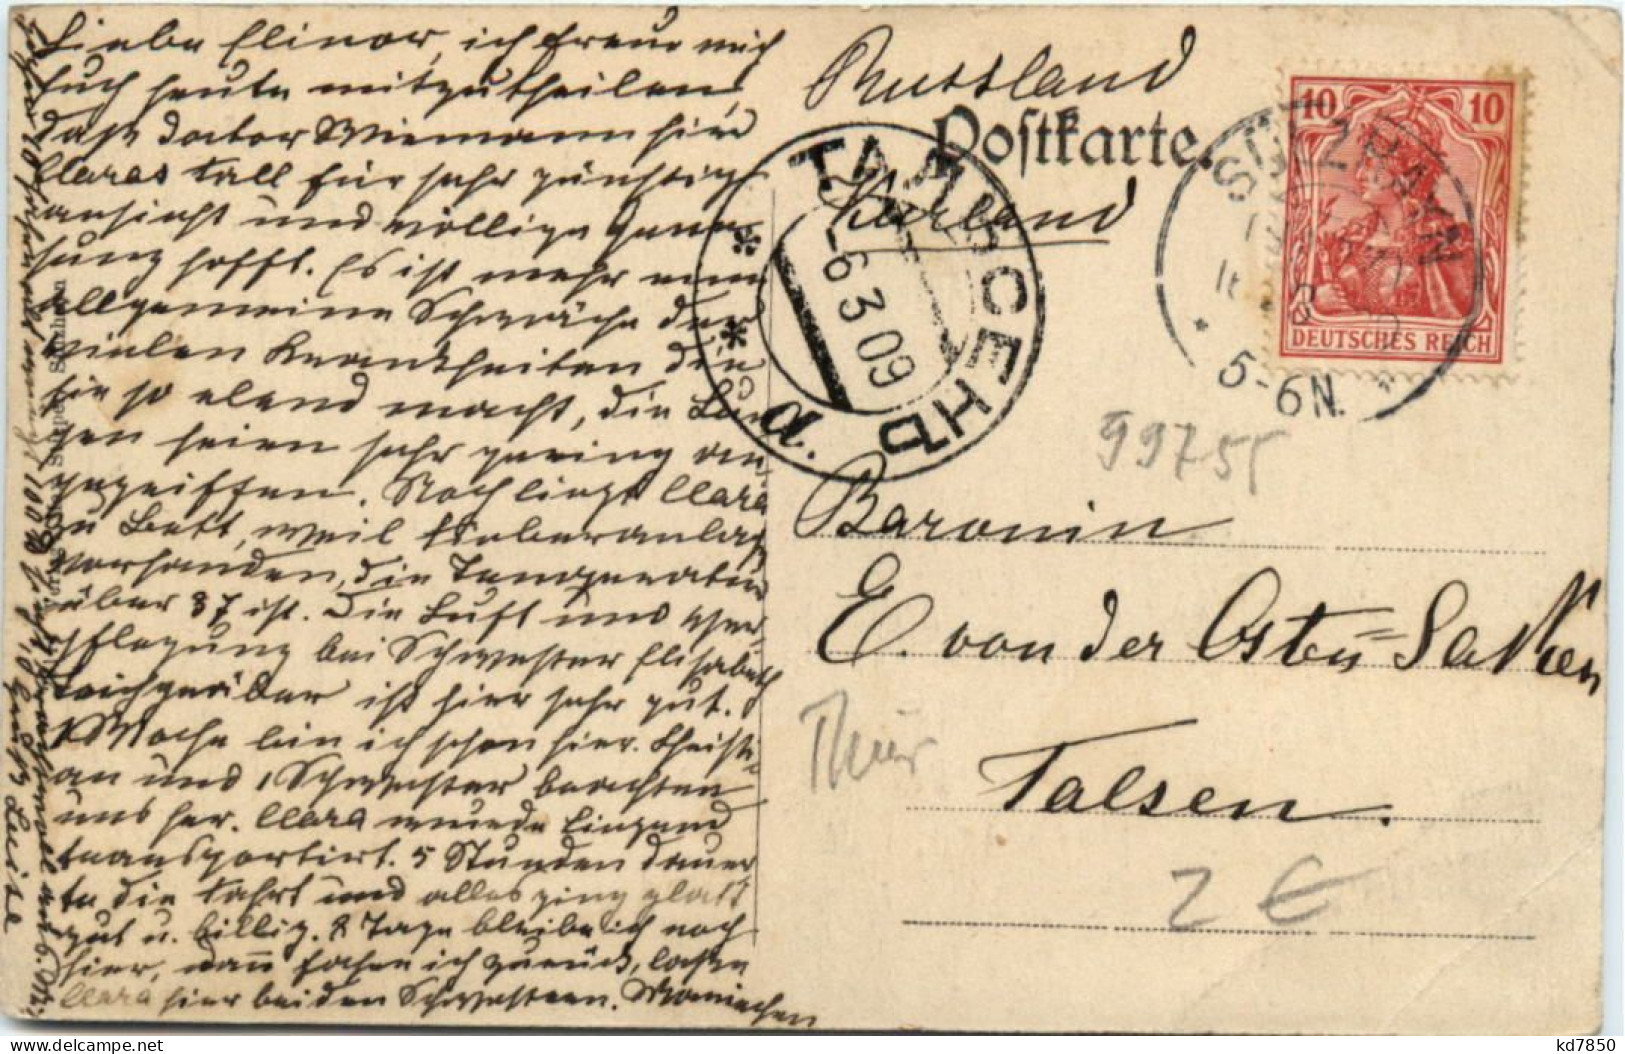 Liebe Elinor, ich freue mich
Euch heute mitzutheilen,
daß Doctor Wiemann hier
Claras Fall für sehr günstig
ansieht und völlige Gene-
sung hofft. Es ist mehr eine
allgemeine Schwäche der
vielen Krankheiten die
sie so elend macht, die Lun-
gen seien sehr gering an-
gegriffen. Noch liegt Clara
zu Bett, weil Fieberanlage
vorhanden, die Temperatur
über 37 ist. Die Luft und Ver-
pflegung bei Schwester Elisabeth
ist hier sehr gut.
1 Woche bin ich schon hier. Christi-
an und 1 Schwester brachten
uns her. Clara wurde liegend
transportirt. 5 Stunden dauer-
te die Fahrt und alles ging glatt
gut u. billig. 8 Tage bleibe ich noch
hier, dann fahre ich zurück, lasse
Clara hier bei den Schwestern.
Luise
Russland
Postkarte.
Kurland
10 10
DEUTSCHES REICH
SÜLZHAYN
5-6N.
ТАЛЬСЕНЪ
6 3 09
99755
Baronin
E. von der Osten=Sacken
Thür
Talsen.
2 €
kd7850